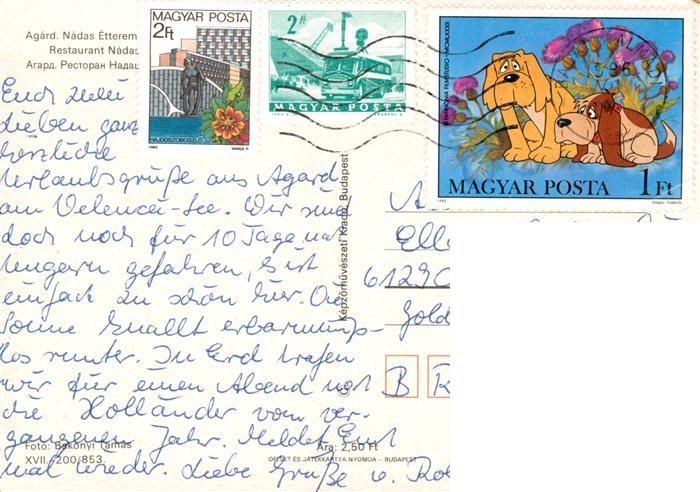 Agárd. Nádas Étterem
Restaurant Nádas
Агард. Ресторан Надаш
MAGYAR POSTA
2 Ft
HAJDÚSZOBOSZLÓ
1983
VARGA P.
2 Ft
MAGYAR POSTA
PANNONIA FILMSTUDIO MCMLXXXII
MAGYAR POSTA 1 Ft
1982
Euch zwei
Lieben ganz
herzliche
Urlaubsgrüße aus Agard
am Velencei-See. Wir sind
doch noch für 10 Tage nach
Ungarn gefahren, es ist
einfach zu schön hier. Die
Sonne knallt erbarmungs-
los runter. In Erd trafen
wir für einen Abend noch
die Holländer vom ver-
gangenen Jahr. Meldet Euch
mal wieder. Liebe Grüße v. Rol
Elle
6129
Gold
B R
Képzőművészeti Kiadó, Budapest
Foto: Bakonyi Tamás
XVII.-200/853.
Ára: 2,50 Ft
OFFSET ÉS JÁTÉKKÁRTYA NYOMDA – BUDAPEST